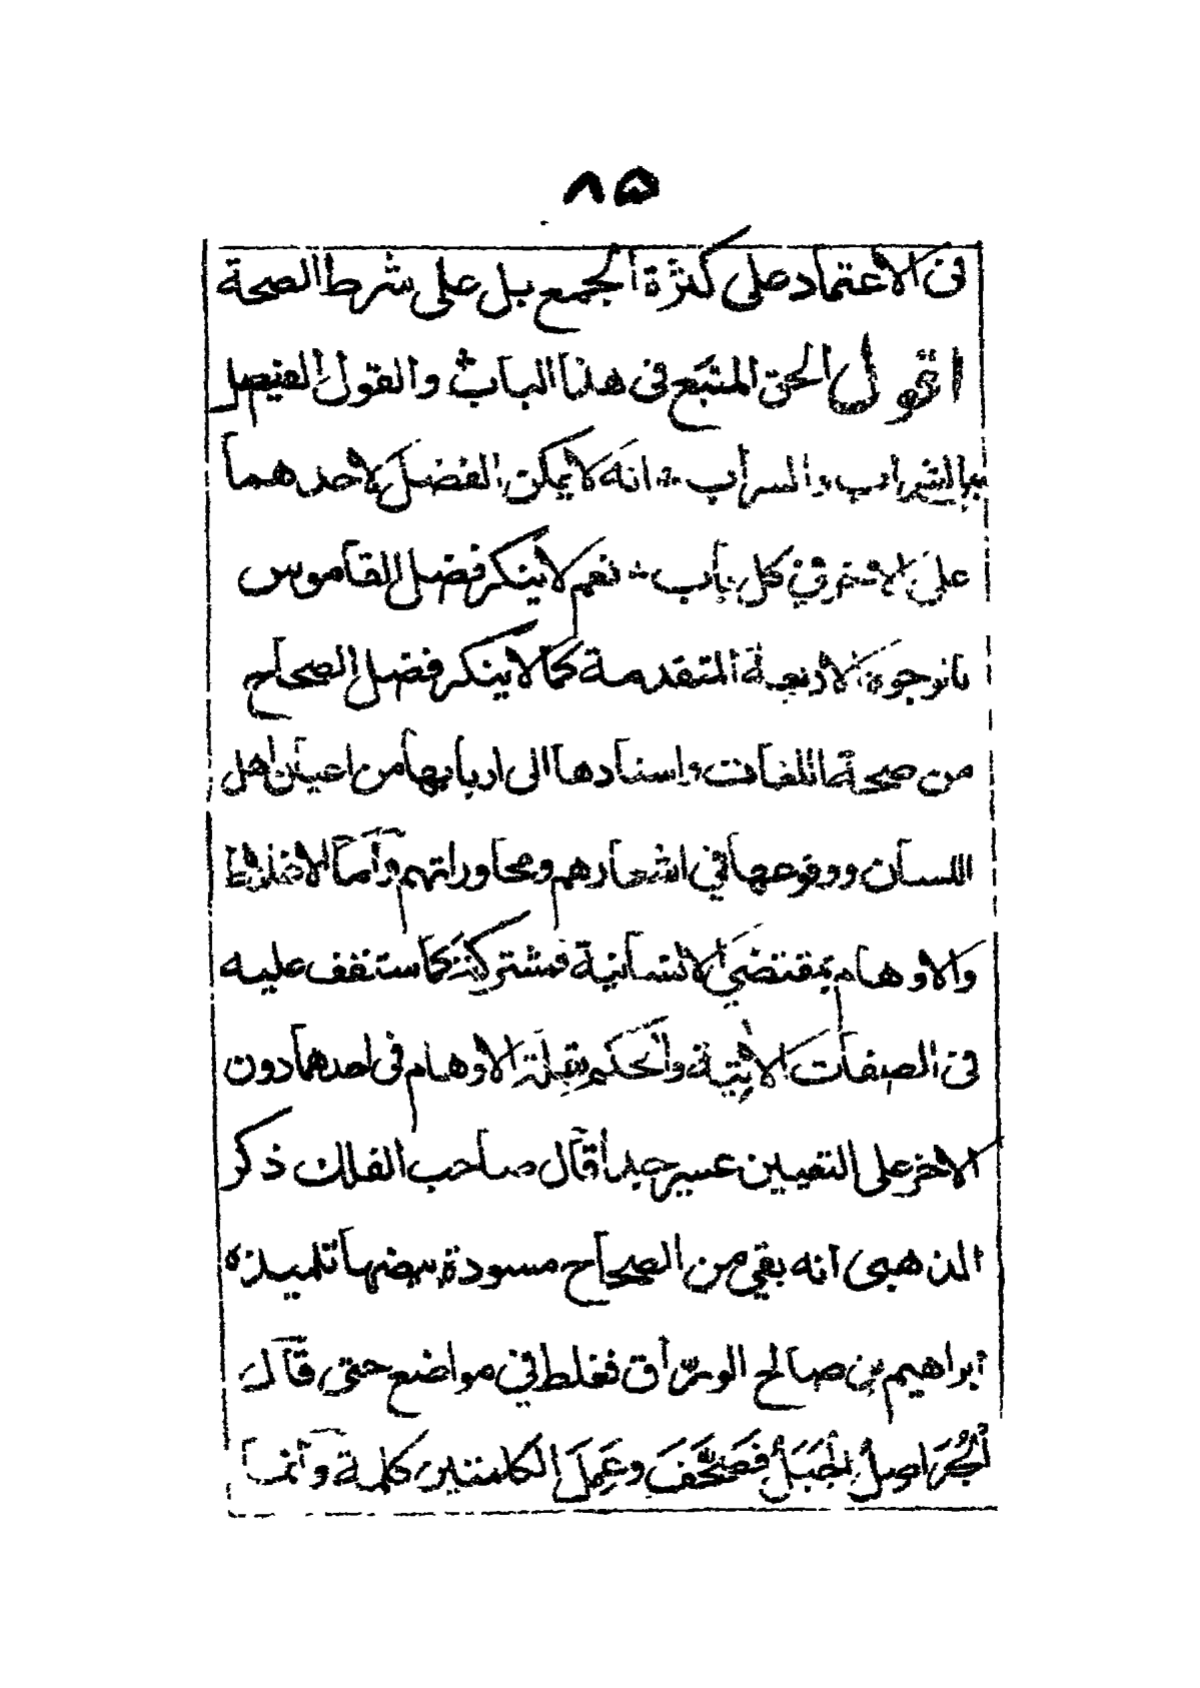 ٨٥
في الاعتماد على كثرة الجمع بل على شرط الصحة
اقول الحق المتبع في هذا الباب والقول الفيصل
بالشراب والسراب انه لا يمكن الفضل لاحدهما
على الاخر في كل باب نعم لا ينكر فضل القاموس
بالوجوه الاربعة المتقدمة كما لا ينكر فضل الصحاح
من صحة اللغات واسنادها الى اربابها من اعيان اهل
اللسان ووقوعها في اشعارهم ومحاوراتهم وآما الاغلاط
والاوهام بمقتضى الانسانية فمشتركة كما ستقف عليه
في الصفات الآتية والحكم بقلة الاوهام في احدهما دون
الاخر على التعيين عسير جدا قال صاحب الفلك ذكر
الذهبي انه بقي من الصحاح مسودة بيضها تلميذه
ابراهيم بن صالح الورّاق فغلط في مواضع حتى قال
اَلجُرَاصلُ الجَبَلُ فَصَحَّفَ وعَمِلَ الكلمتين كلمة وآنما